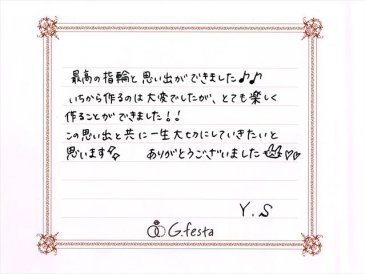 最高の指輪と思い出ができました♪♪
いちから作るのは大変でしたが、とても楽しく
作ることができました！！
この思い出と共に一生大切にしていきたいと
思います ありがとうございました♡♡
Y.S
G.festa